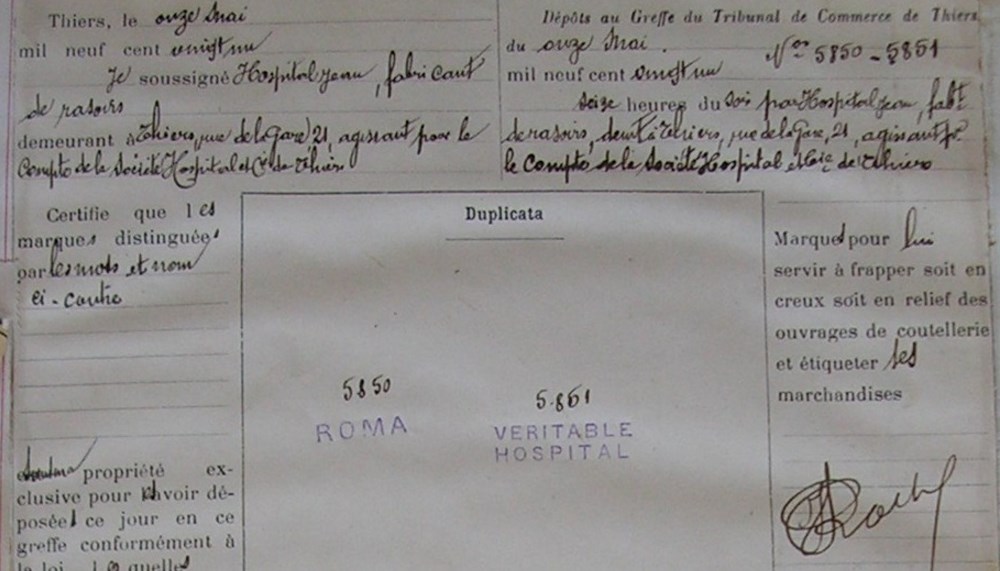 Thiers, le onze Mai
mil neuf cent vingt un
Je soussigné Hospital Jean, fabricant
de rasoirs
demeurant à Thiers, rue de la Gare, 21, agissant pour le
Compte de la Société Hospital et Cie de Thiers
Certifie que les
marques distinguées
par les mots et nom
ci-contre
propriété ex-
clusive pour l'avoir dé-
posées ce jour en ce
greffe conformément à
la loi,
Dépôts au Greffe du Tribunal de Commerce de Thiers
du onze Mai.
Nos 5850 - 5851
mil neuf cent vingt un
seize heures du soir par Hospital Jean, fabt
de rasoirs, demt à Thiers, rue de la Gare, 21, agissant pr
le Compte de la Société Hospital et Cie de Thiers
Duplicata
5850
ROMA
5.851
VERITABLE
HOSPITAL
Marques pour lui
servir à frapper soit en
creux soit en relief des
ouvrages de coutellerie
et étiqueter ses
marchandises